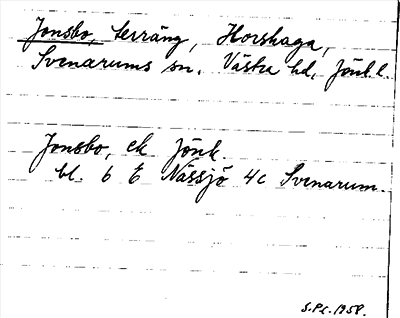 Jonsbo, terräng, Horshaga,
Svenarums sn. Västra hd, Jönk. l.
Jonsbo, ek Jönk.
bl. 6 E Nässjö 4c Svenarum.
S.P.L. 1958.